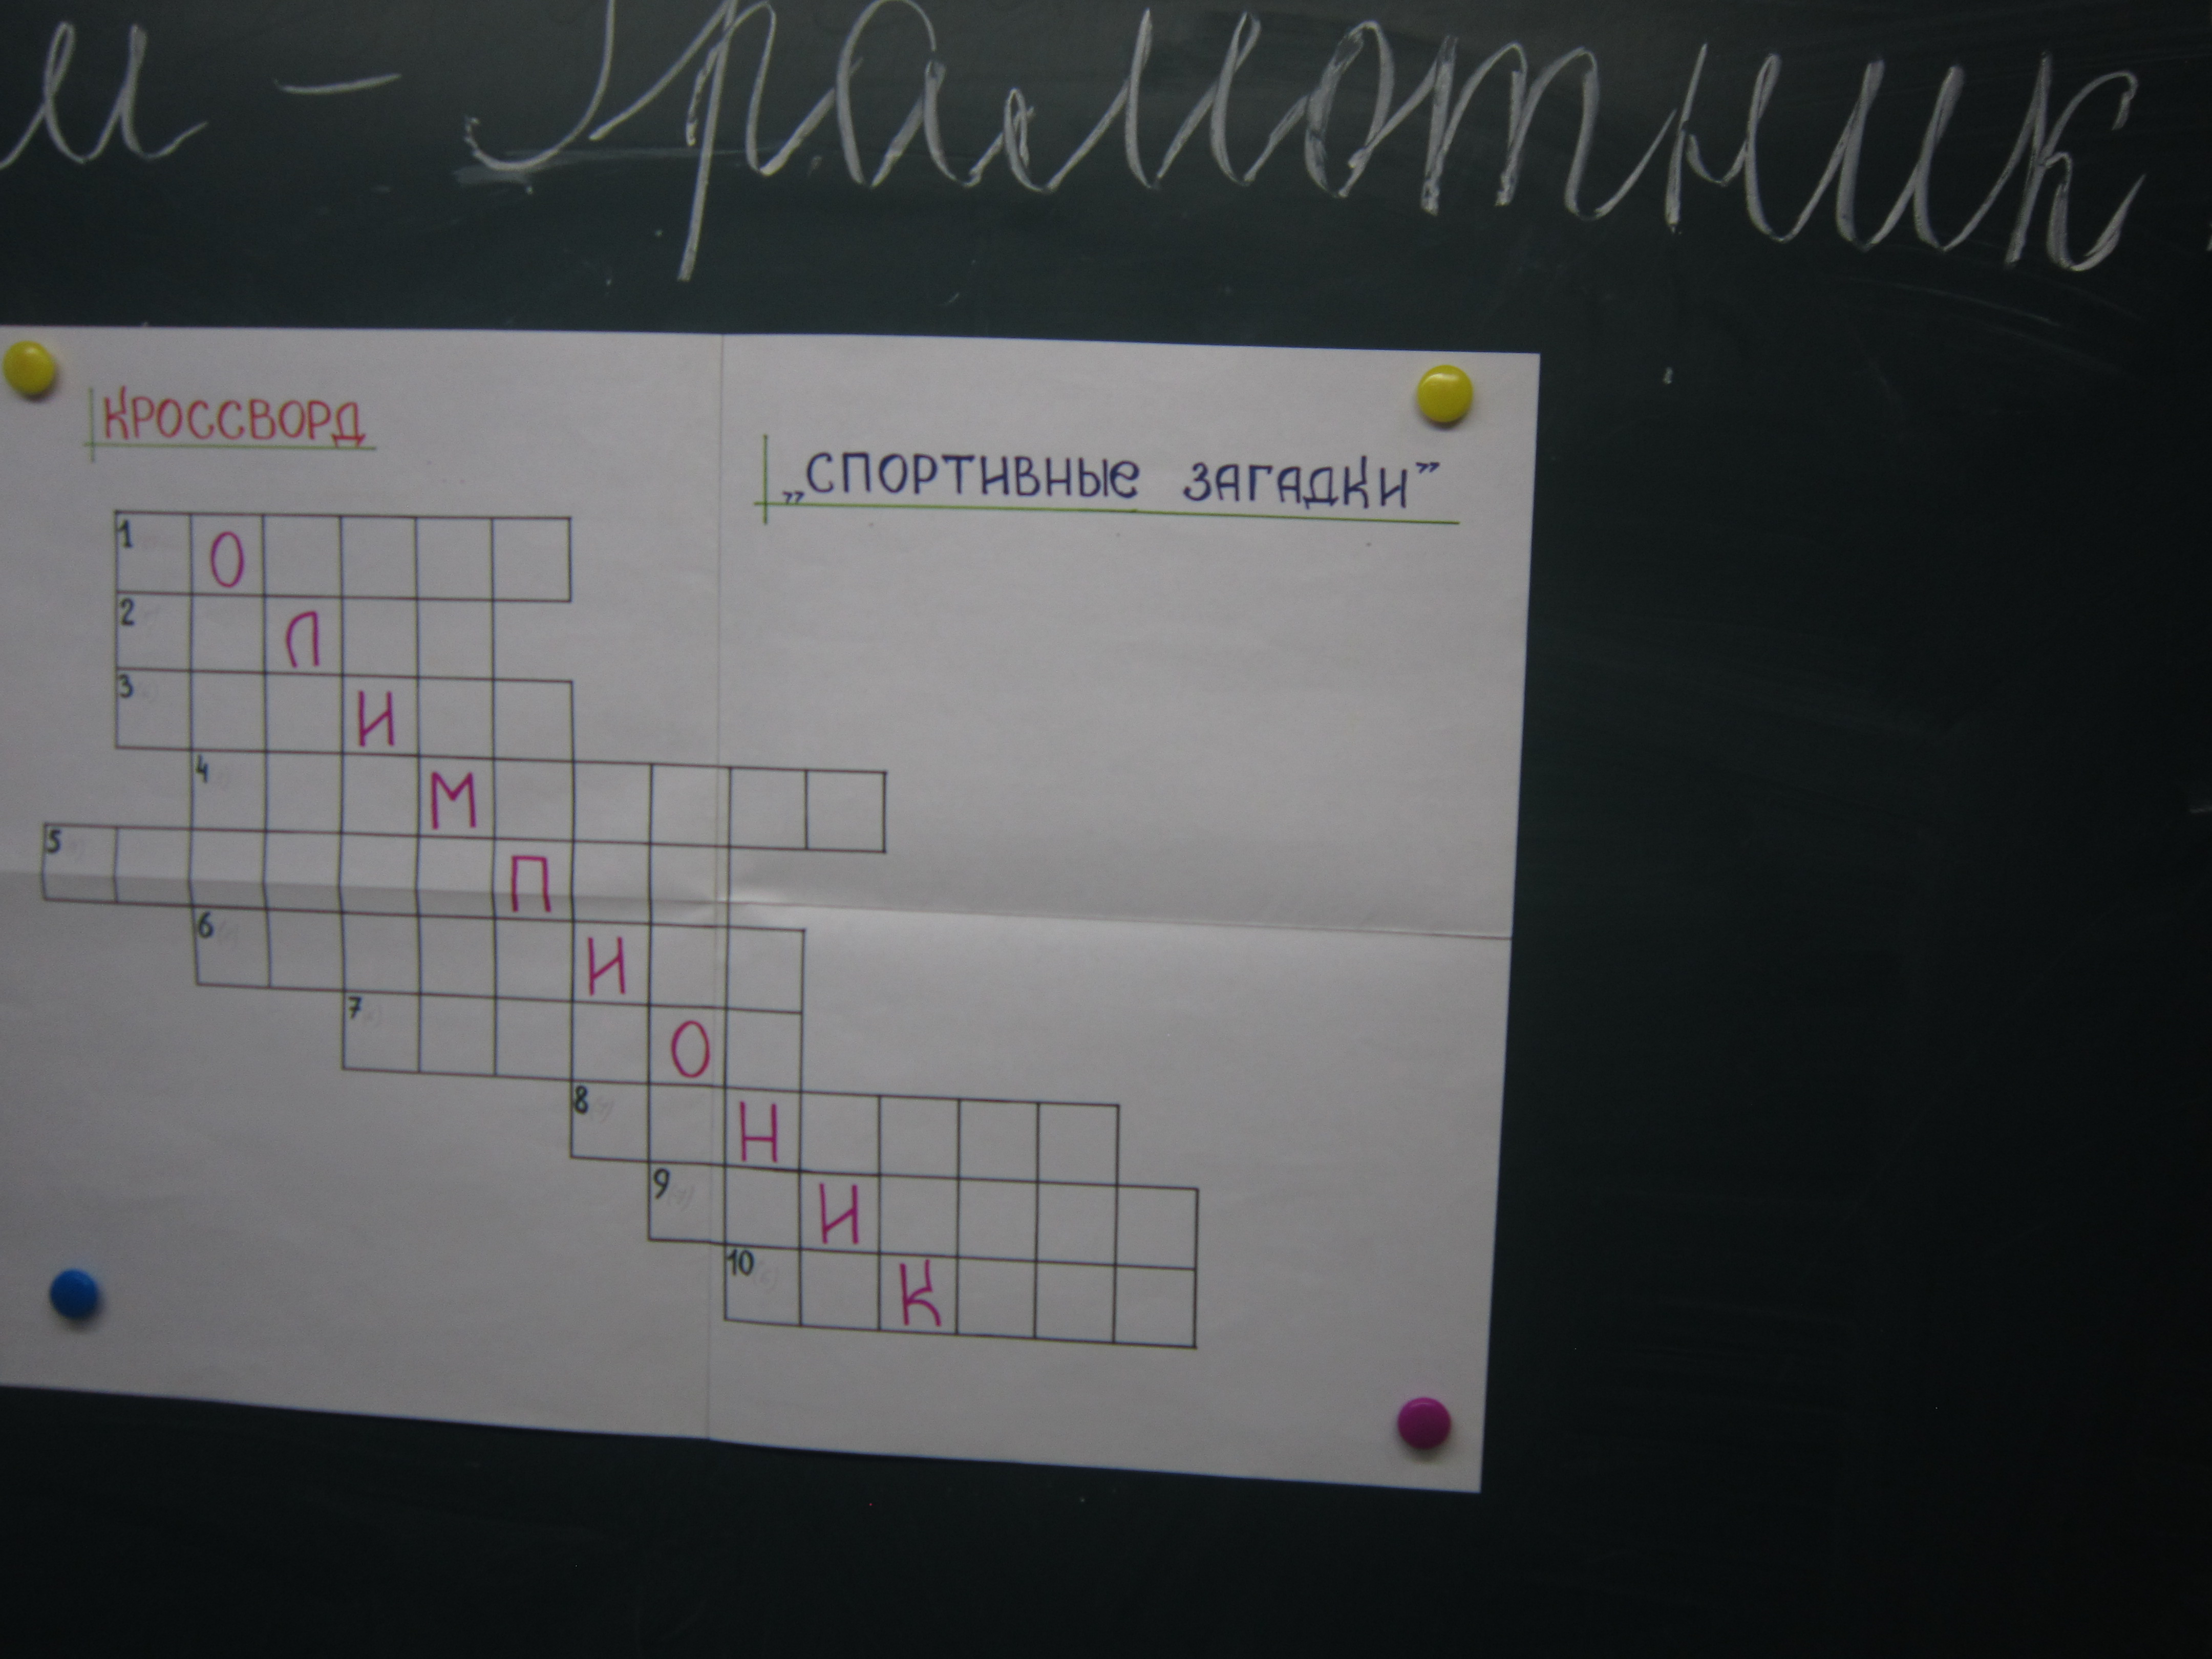 и - Грамотник
КРОССВОРД
„СПОРТИВНЫЕ ЗАГАДКИ”
1 О
2 Л
3 И
4 М
5 П
6 И
7 О
8 Н
9 И
10 К